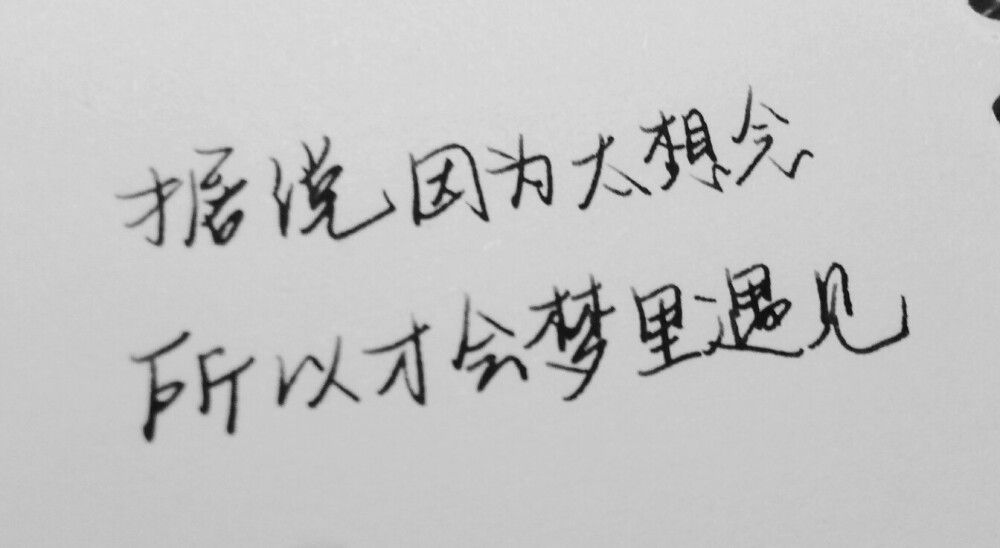 据说因为太想念
所以才会梦里遇见